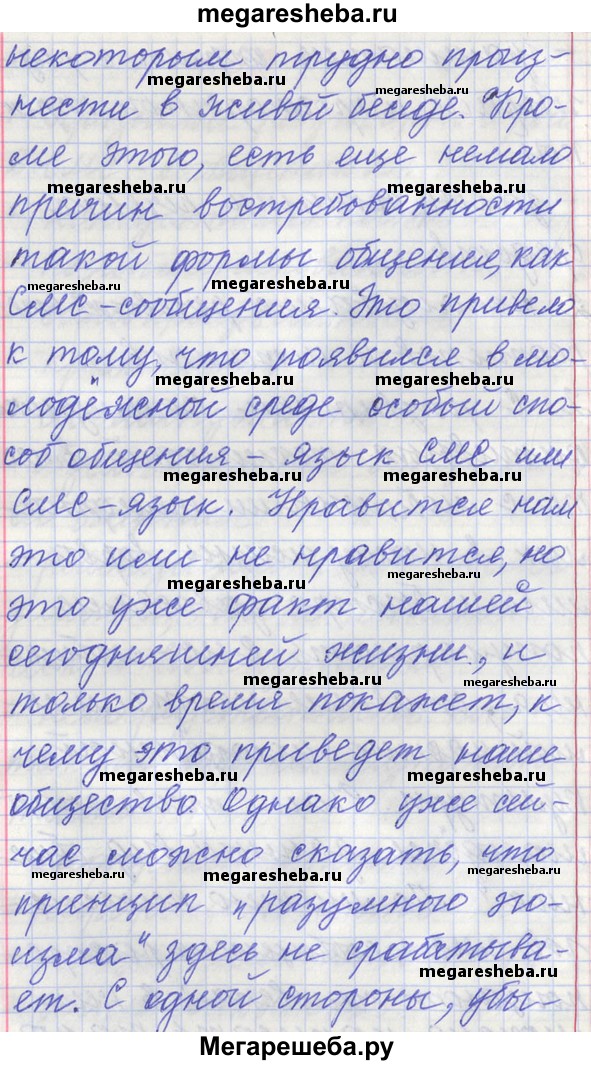 megaresheba.ru
некоторым трудно произ-
megaresheba.ru
megaresheba.ru
нести в живой беседе. Кро-
ме этого, есть еще немало
megaresheba.ru
megaresheba.ru
причин востребованности
такой формы общения, как
megaresheba.ru
megaresheba.ru
СМС-сообщения. Это привело
к тому, что появился в мо-
megaresheba.ru
megaresheba.ru
лодежной среде особый спо-
соб общения – язык СМС или
megaresheba.ru
megaresheba.ru
СМС-язык. Нравится нам
это или не нравится, но
megaresheba.ru
megaresheba.ru
это уже факт нашей
сегодняшней жизни, и
megaresheba.ru
megaresheba.ru
только время покажет, к
чему это приведет наше
megaresheba.ru
megaresheba.ru
общество. Однако уже сей-
час можно сказать, что
megaresheba.ru
megaresheba.ru
megaresheba.ru
принцип „разумного эго-
изма“ здесь не срабатыва-
megaresheba.ru
ет. С одной стороны, убы-
Мегарешеба.ру